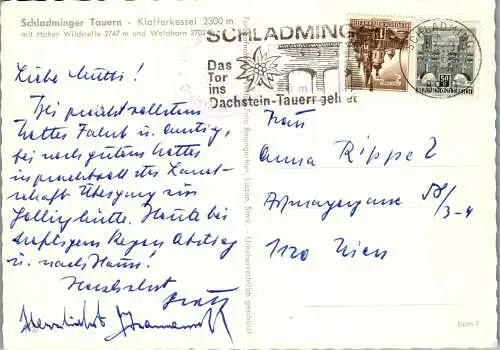 Schladminger Tauern - Klafferkessel 2300 m
mit Hoher Wildstelle 2747 m und Waldhorn 2702
SCHLADMING
Das
Tor
ins
Dachstein-Tauerngebiet
SCHLADMING
Liebe Mutti!
Bei prachtvollstem
Wetter Fahrt u. Anstieg,
bei noch gutem Wetter
in prachtvoller Land-
schaft Übergang zur
Gollinghütte. Heute bei
kräftigem Regen Abstieg
u. nach Haus!
Herzlichst
Herzlichst
Frau
Anna Rippel
Aßmayergasse
1120 Wien
Foto Baumgartner, Liezen, Stmk. - Urheberrechtlich geschützt
bum 7